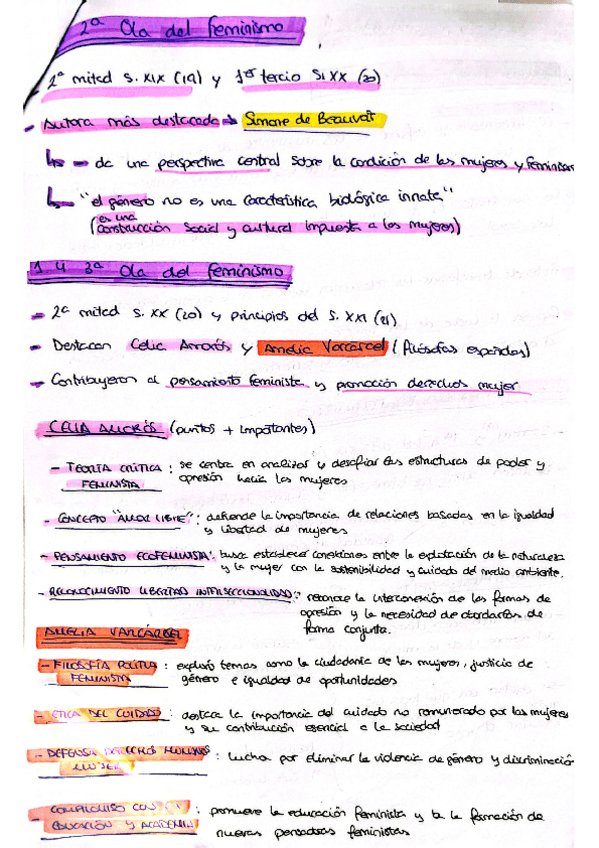 2ª Ola del feminismo
2ª mitad S. XIX (19) y 1er tercio S. XX (20)
- Autora más destacada → Simone de Beauvoir
↳ - da una perspectiva central sobre la condición de las mujeres y feminismo
↳ "el género no es una característica biológica innata"
(es una construcción social y cultural impuesta a las mujeres)
3ª Ola del feminismo
- 2ª mitad S. XX (20) y principios del S. XXI (21)
- Destacan Celia Amorós y Amelia Varcárcel (filósofas españolas)
- Contribuyeron al pensamiento feminista y promoción derechos mujer
CELIA AMORÓS (puntos + importantes)
- TEORÍA CRÍTICA : se centra en analizar y desafiar las estructuras de poder y
FEMINISTA opresión hacia las mujeres
- CONCEPTO "AMOR LIBRE" : defiende la importancia de relaciones basadas en la igualdad
y libertad de mujeres
- PENSAMIENTO ECOFEMINISTA : busca establecer conexiones entre la explotación de la naturaleza
y la mujer con la sostenibilidad y cuidado del medio ambiente.
- RECONOCIMIENTO LIBERTAD INTERSECCIONALIDAD : reconoce la interconexión de las formas de
opresión y la necesidad de abordarlas de
forma conjunta.
AMELIA VARCÁRCEL
- FILOSOFÍA POLÍTICA : exploró temas como la ciudadanía de las mujeres, justicia de
FEMINISTA género e igualdad de oportunidades
- ETICA DEL CUIDADO : destaca la importancia del cuidado no remunerado por las mujeres
y su contribución esencial a la sociedad
- DEFENSA DERECHOS HUMANOS : lucha por eliminar la violencia de género y discriminación
MUJER
- COMPROMISO CON : promueve la educación feminista y la formación de
EDUCACIÓN Y ACADEMIA nuevas pensadoras feministas